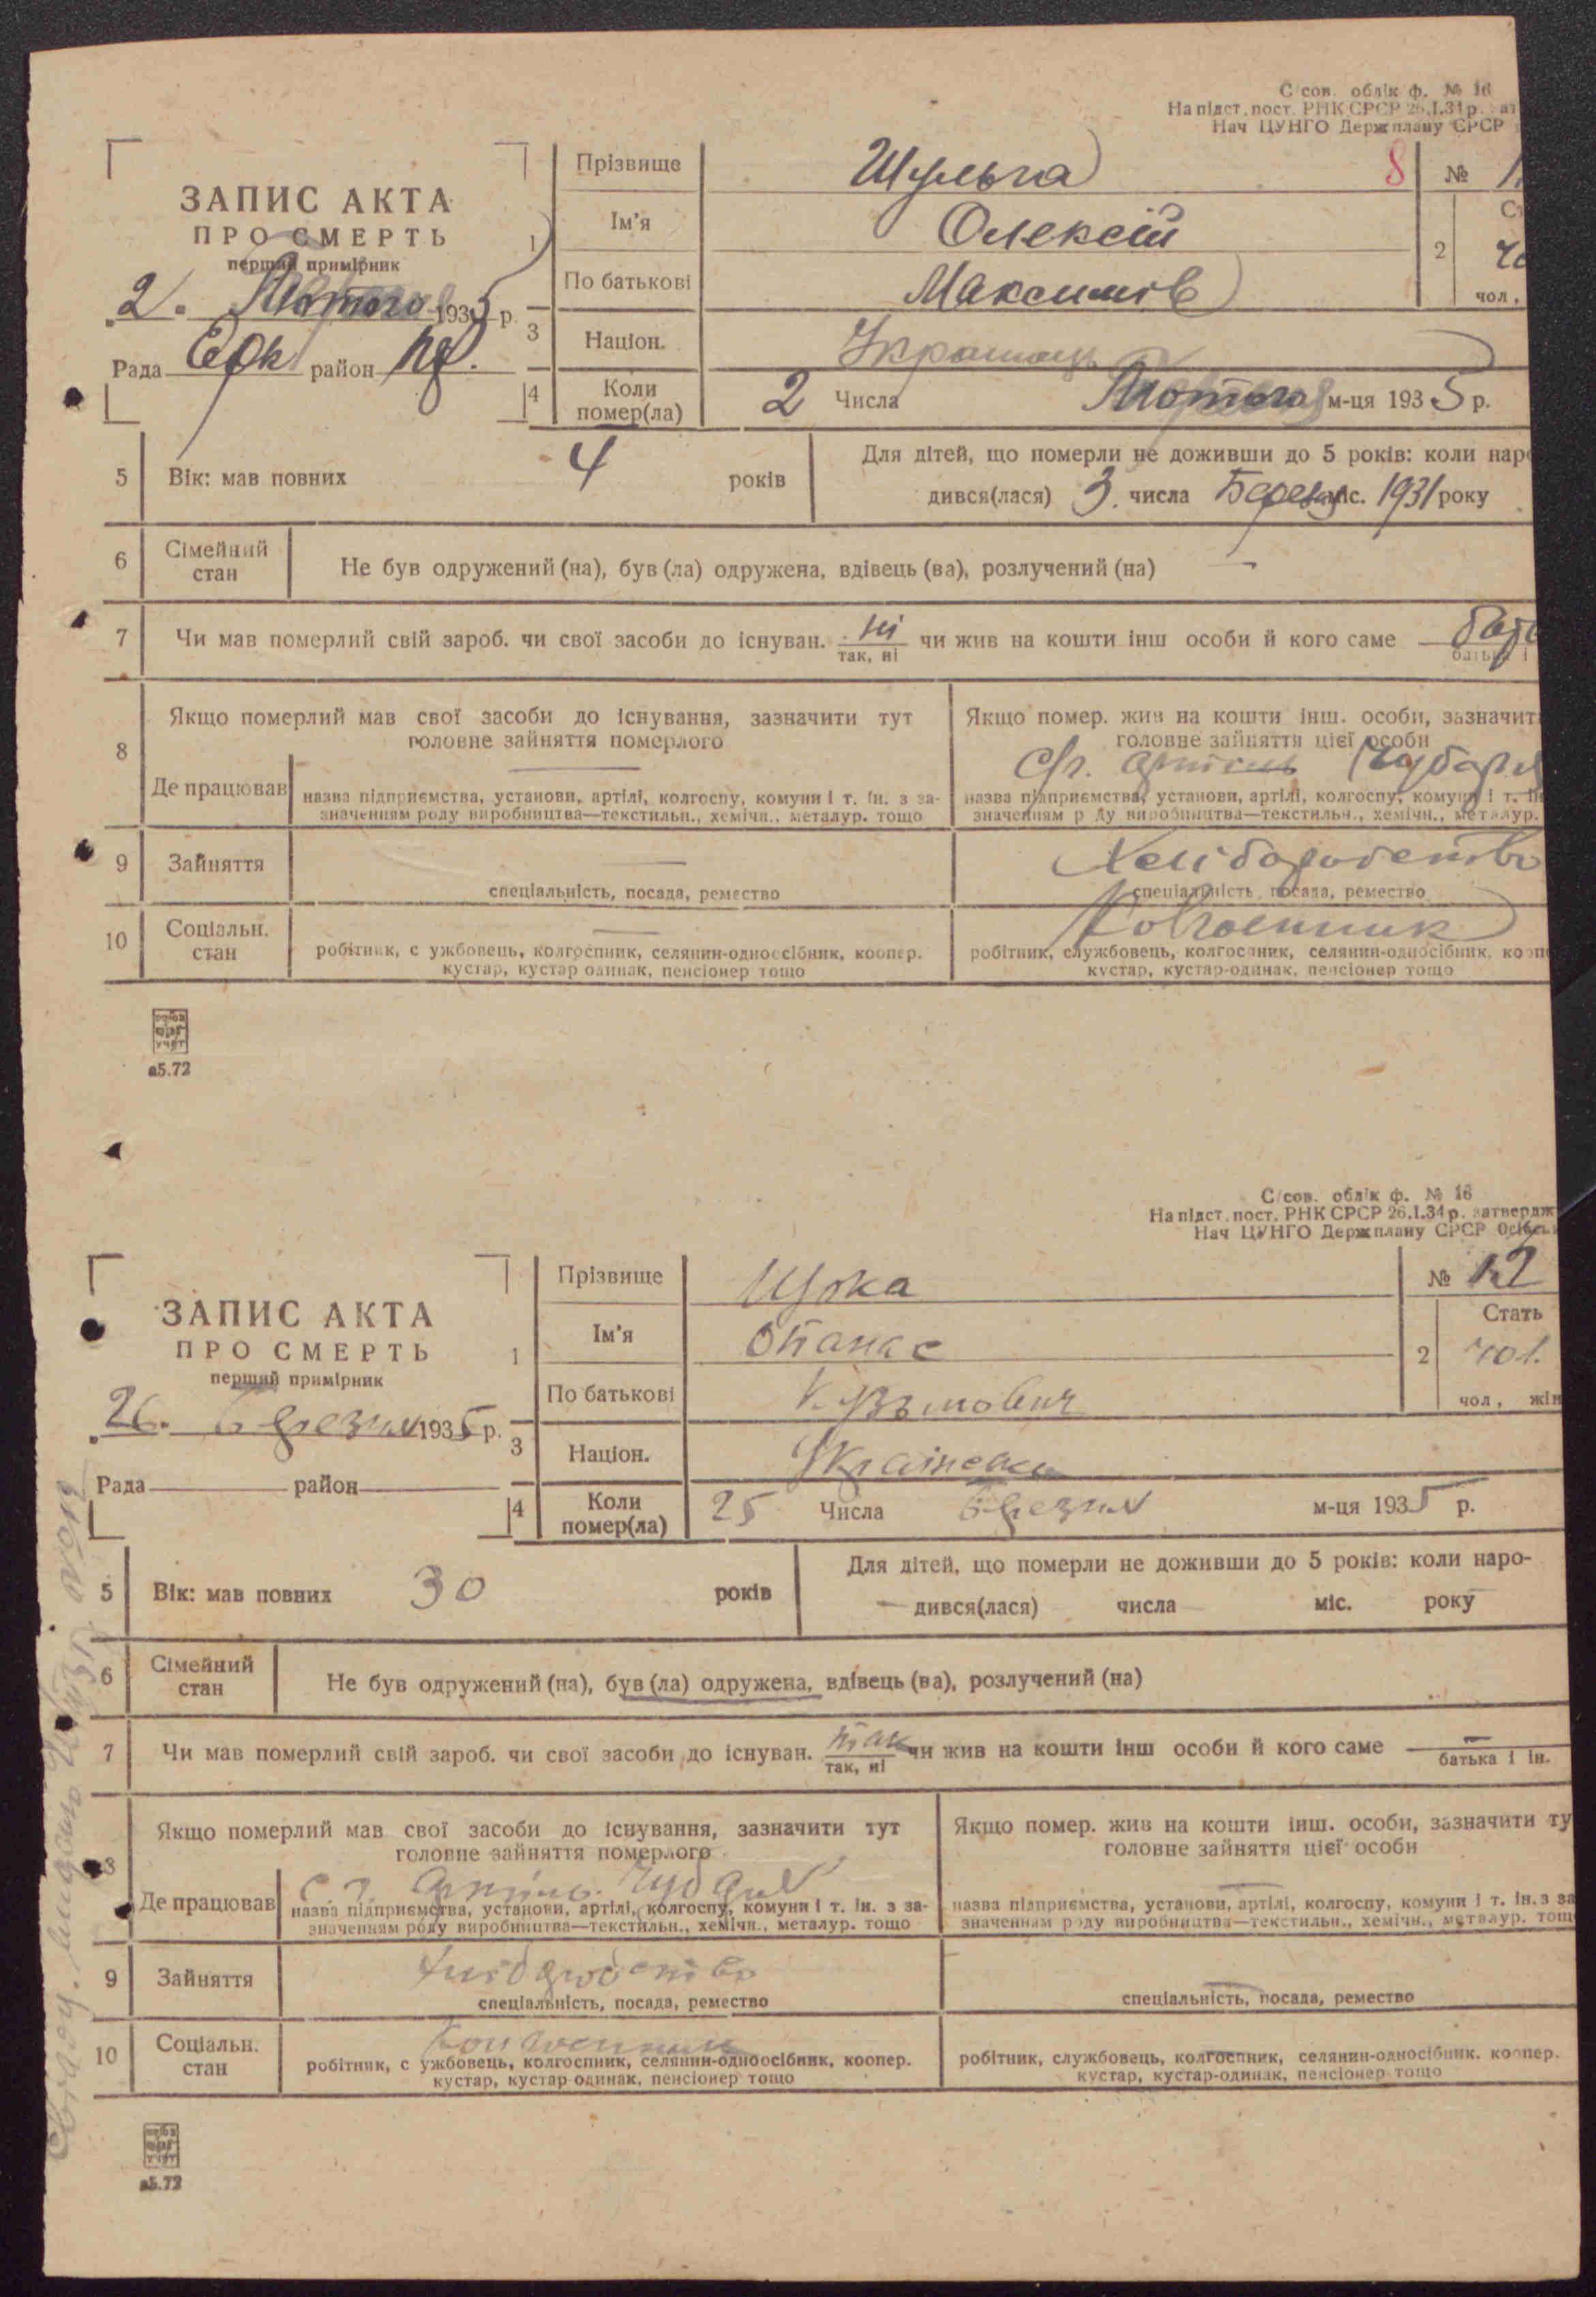 С/сов. облік ф. № 16
На підст. пост. РНК СРСР 26.1.34 р.
Нач ЦУНГО Держплану СРСР
ЗАПИС АКТА
ПРО СМЕРТЬ
перший примірник
2. Лютого 1935 р.
Рада район
1 Прізвище Шульга 8 №
Ім'я Олексій
По батькові Максимов 2 чол.
3 Націон. Украинець
4 Коли помер(ла) 2 Числа Лютого м-ця 1935 р.
5 Вік: мав повних 4 років
Для дітей, що померли не доживши до 5 років: коли наро
дився(лася) 3. числа Березня міс. 1931 року
6 Сімейний стан Не був одружений (на), був (ла) одружена, вдівець (ва), розлучений (на)
7 Чи мав померлий свій зароб. чи свої засоби до існуван. ні чи жив на кошти інш особи й кого саме
так, ні
8 Якщо померлий мав свої засоби до існування, зазначити тут
головне зайняття померлого
Якщо помер. жив на кошти інш. особи, зазначит
головне зайняття цієї особи
с/г. артіль Чубаря
Де працював
назва підприємства, установи, артілі, колгоспу, комуни і т. ін. з за-
значенням роду виробництва—текстильн., хемічн., металур. тощо
назва підприємства, установи, артілі, колгоспу, комуни і т. ін
значенням р ду виробництва—текстильн., хемічн., металур.
9 Зайняття Хліборобство
спеціальність, посада, ремество
спеціальність, посада, ремество
10 Соціальн. стан Колгоспник
робітник, с ужбовець, колгоспник, селянин-одноосібник, коопер.
кустар, кустар одинак, пенсіонер тощо
робітник, службовець, колгоспник, селянин-односібник, кооп
кустар, кустар-одинак, пенсіонер тощо
а5.72
С/сов. облік ф. № 16
На підст. пост. РНК СРСР 26.1.34 р. затвердж
Нач ЦУНГО Держплану СРСР
ЗАПИС АКТА
ПРО СМЕРТЬ
перший примірник
26. Березня 1935 р.
Рада район
1 Прізвище Щока № 12
Ім'я Опанас Стать
2 чол.
По батькові Кузьмович чол, жін
3 Націон. Українець
4 Коли помер(ла) 25 Числа Березня м-ця 1935 р.
5 Вік: мав повних 30 років
Для дітей, що померли не доживши до 5 років: коли наро-
дився(лася) числа міс. року
6 Сімейний стан Не був одружений (на), був (ла) одружена, вдівець (ва), розлучений (на)
7 Чи мав померлий свій зароб. чи свої засоби до існуван. так чи жив на кошти інш особи й кого саме —
так, ні батька і ін.
8 Якщо померлий мав свої засоби до існування, зазначити тут
головне зайняття померлого
Якщо помер. жив на кошти інш. особи, зазначити ту
головне зайняття цієї особи
Де працював с г. Артіль Чубаря
назва підприємства, установи, артілі, колгоспу, комуни і т. ін. з за-
значенням роду виробництва—текстильн., хемічн., металур. тощо
назва підприємства, установи, артілі, колгоспу, комуни і т. ін. з за
значенням р ду виробництва—текстильн., хемічн., металур. тощ
9 Зайняття Хліборобство
спеціальність, посада, ремество
спеціальність, посада, ремество
10 Соціальн. стан Колгоспник
робітник, с ужбовець, колгоспник, селянин-одноосібник, коопер.
кустар, кустар одинак, пенсіонер тощо
робітник, службовець, колгоспник, селянин-односібник. коопер.
кустар, кустар-одинак, пенсіонер тощо
а5.72